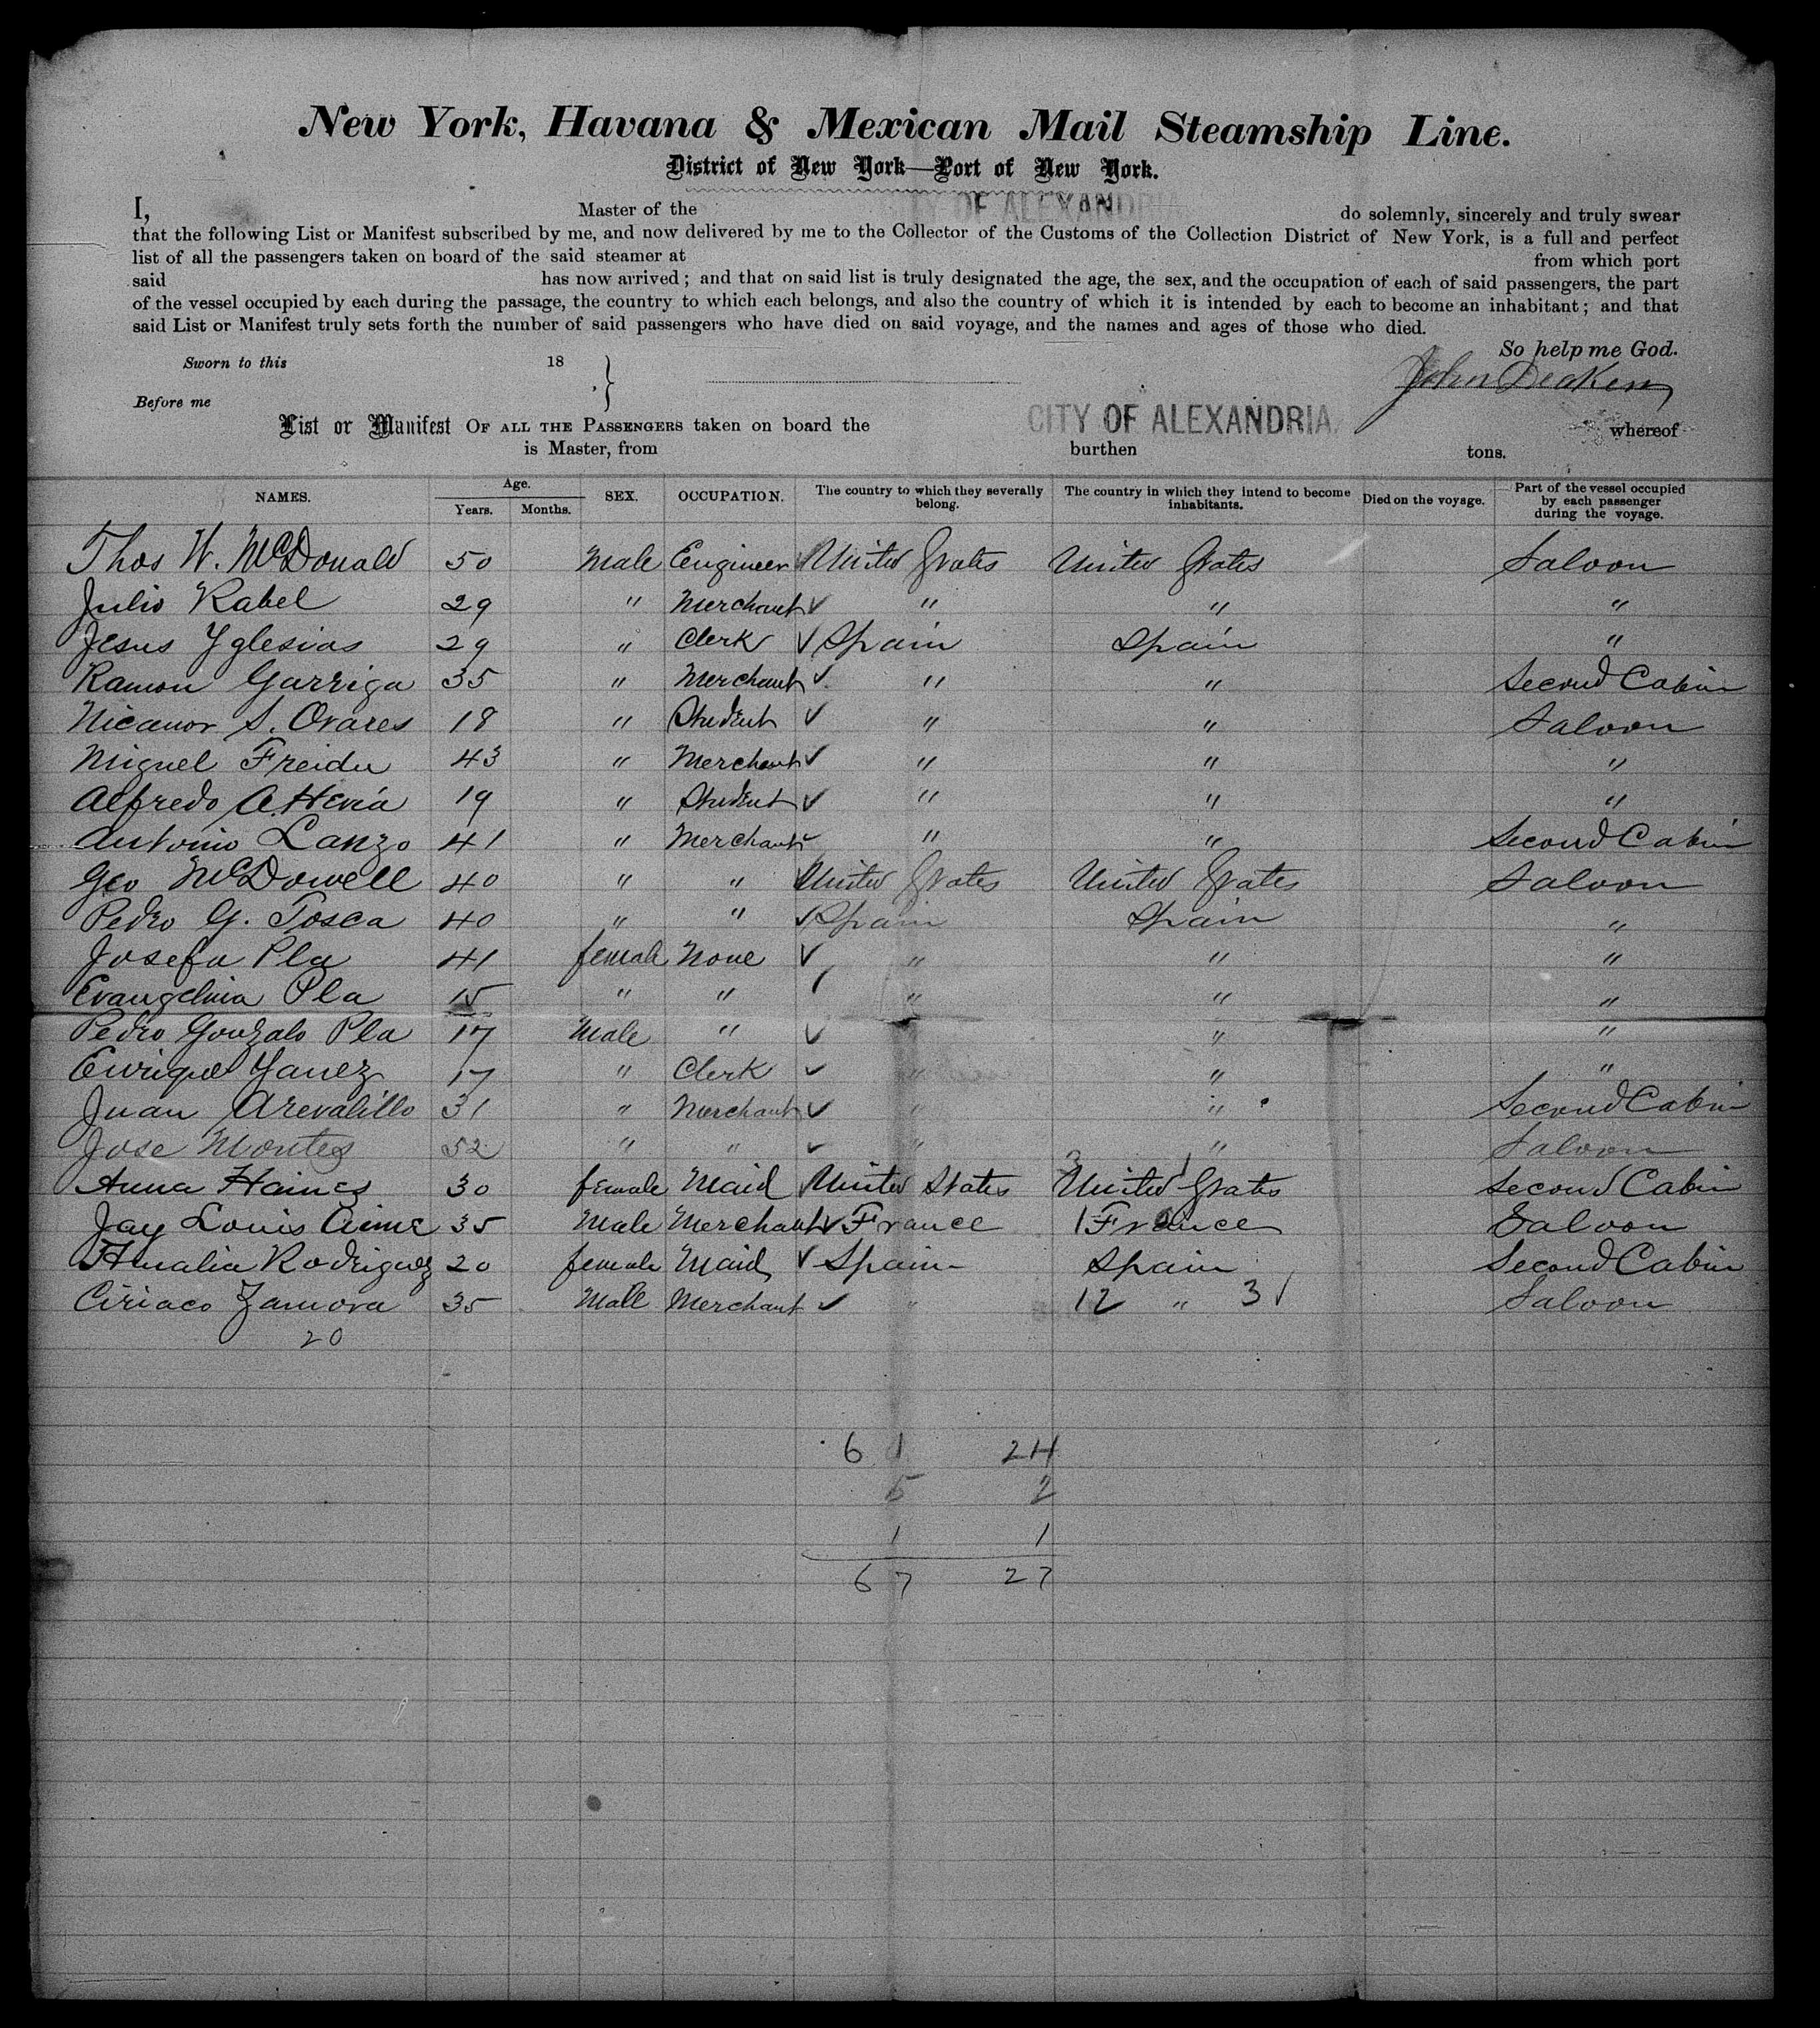 New York, Havana & Mexican Mail Steamship Line.
District of New York—Port of New York.
I, Master of the CITY OF ALEXANDRIA do solemnly, sincerely and truly swear
that the following List or Manifest subscribed by me, and now delivered by me to the Collector of the Customs of the Collection District of New York, is a full and perfect
list of all the passengers taken on board of the said steamer at from which port
said has now arrived; and that on said list is truly designated the age, the sex, and the occupation of each of said passengers, the part
of the vessel occupied by each during the passage, the country to which each belongs, and also the country of which it is intended by each to become an inhabitant; and that
said List or Manifest truly sets forth the number of said passengers who have died on said voyage, and the names and ages of those who died.
So help me God.
Sworn to this 18
John Deaken
Before me
List or Manifest OF ALL THE PASSENGERS taken on board the CITY OF ALEXANDRIA. whereof
is Master, from burthen tons.
NAMES. Age. Years. Months. SEX. OCCUPATION. The country to which they severally belong. The country in which they intend to become inhabitants. Died on the voyage. Part of the vessel occupied by each passenger during the voyage.
Thos W. McDonald 50 Male Engineer ✓ United States United States Saloon
Julio Rabel 29 " Merchant ✓ " " "
Jesus Yglesias 29 " Clerk ✓ Spain Spain "
Ramon Garriga 35 " Merchant ✓ " " Second Cabin
Nicanor S. Ovares 18 " Student ✓ " " Saloon
Miguel Freidu 43 " Merchant ✓ " " "
Alfredo A. Hevia 19 " Student ✓ " " "
Antonio Lanzo 41 " Merchant ✓ " " Second Cabin
Geo McDowell 40 " " United States United States Saloon
Pedro G. Tosca 40 " " ✓ Spain Spain "
Josefa Pla 41 female None ✓ " " "
Evangelina Pla 15 " " ✓ " " "
Pedro Gonzalo Pla 17 Male " ✓ " " "
Enrique Yanez 17 " Clerk ✓ " " "
Juan Arevalillo 31 " Merchant ✓ " " Second Cabin
Jose Montes 52 " " ✓ " " Saloon
Anna Haines 30 female Maid ✓ United States United States Second Cabin
Jay Louis Aime 35 Male Merchant ✓ France 1 France Saloon
Amalia Rodriguez 20 female Maid ✓ Spain Spain Second Cabin
Ciriaco Zamora 35 Male Merchant ✓ " 12 " 3 ✓ Saloon
20
61 24
5 2
1 1
67 27